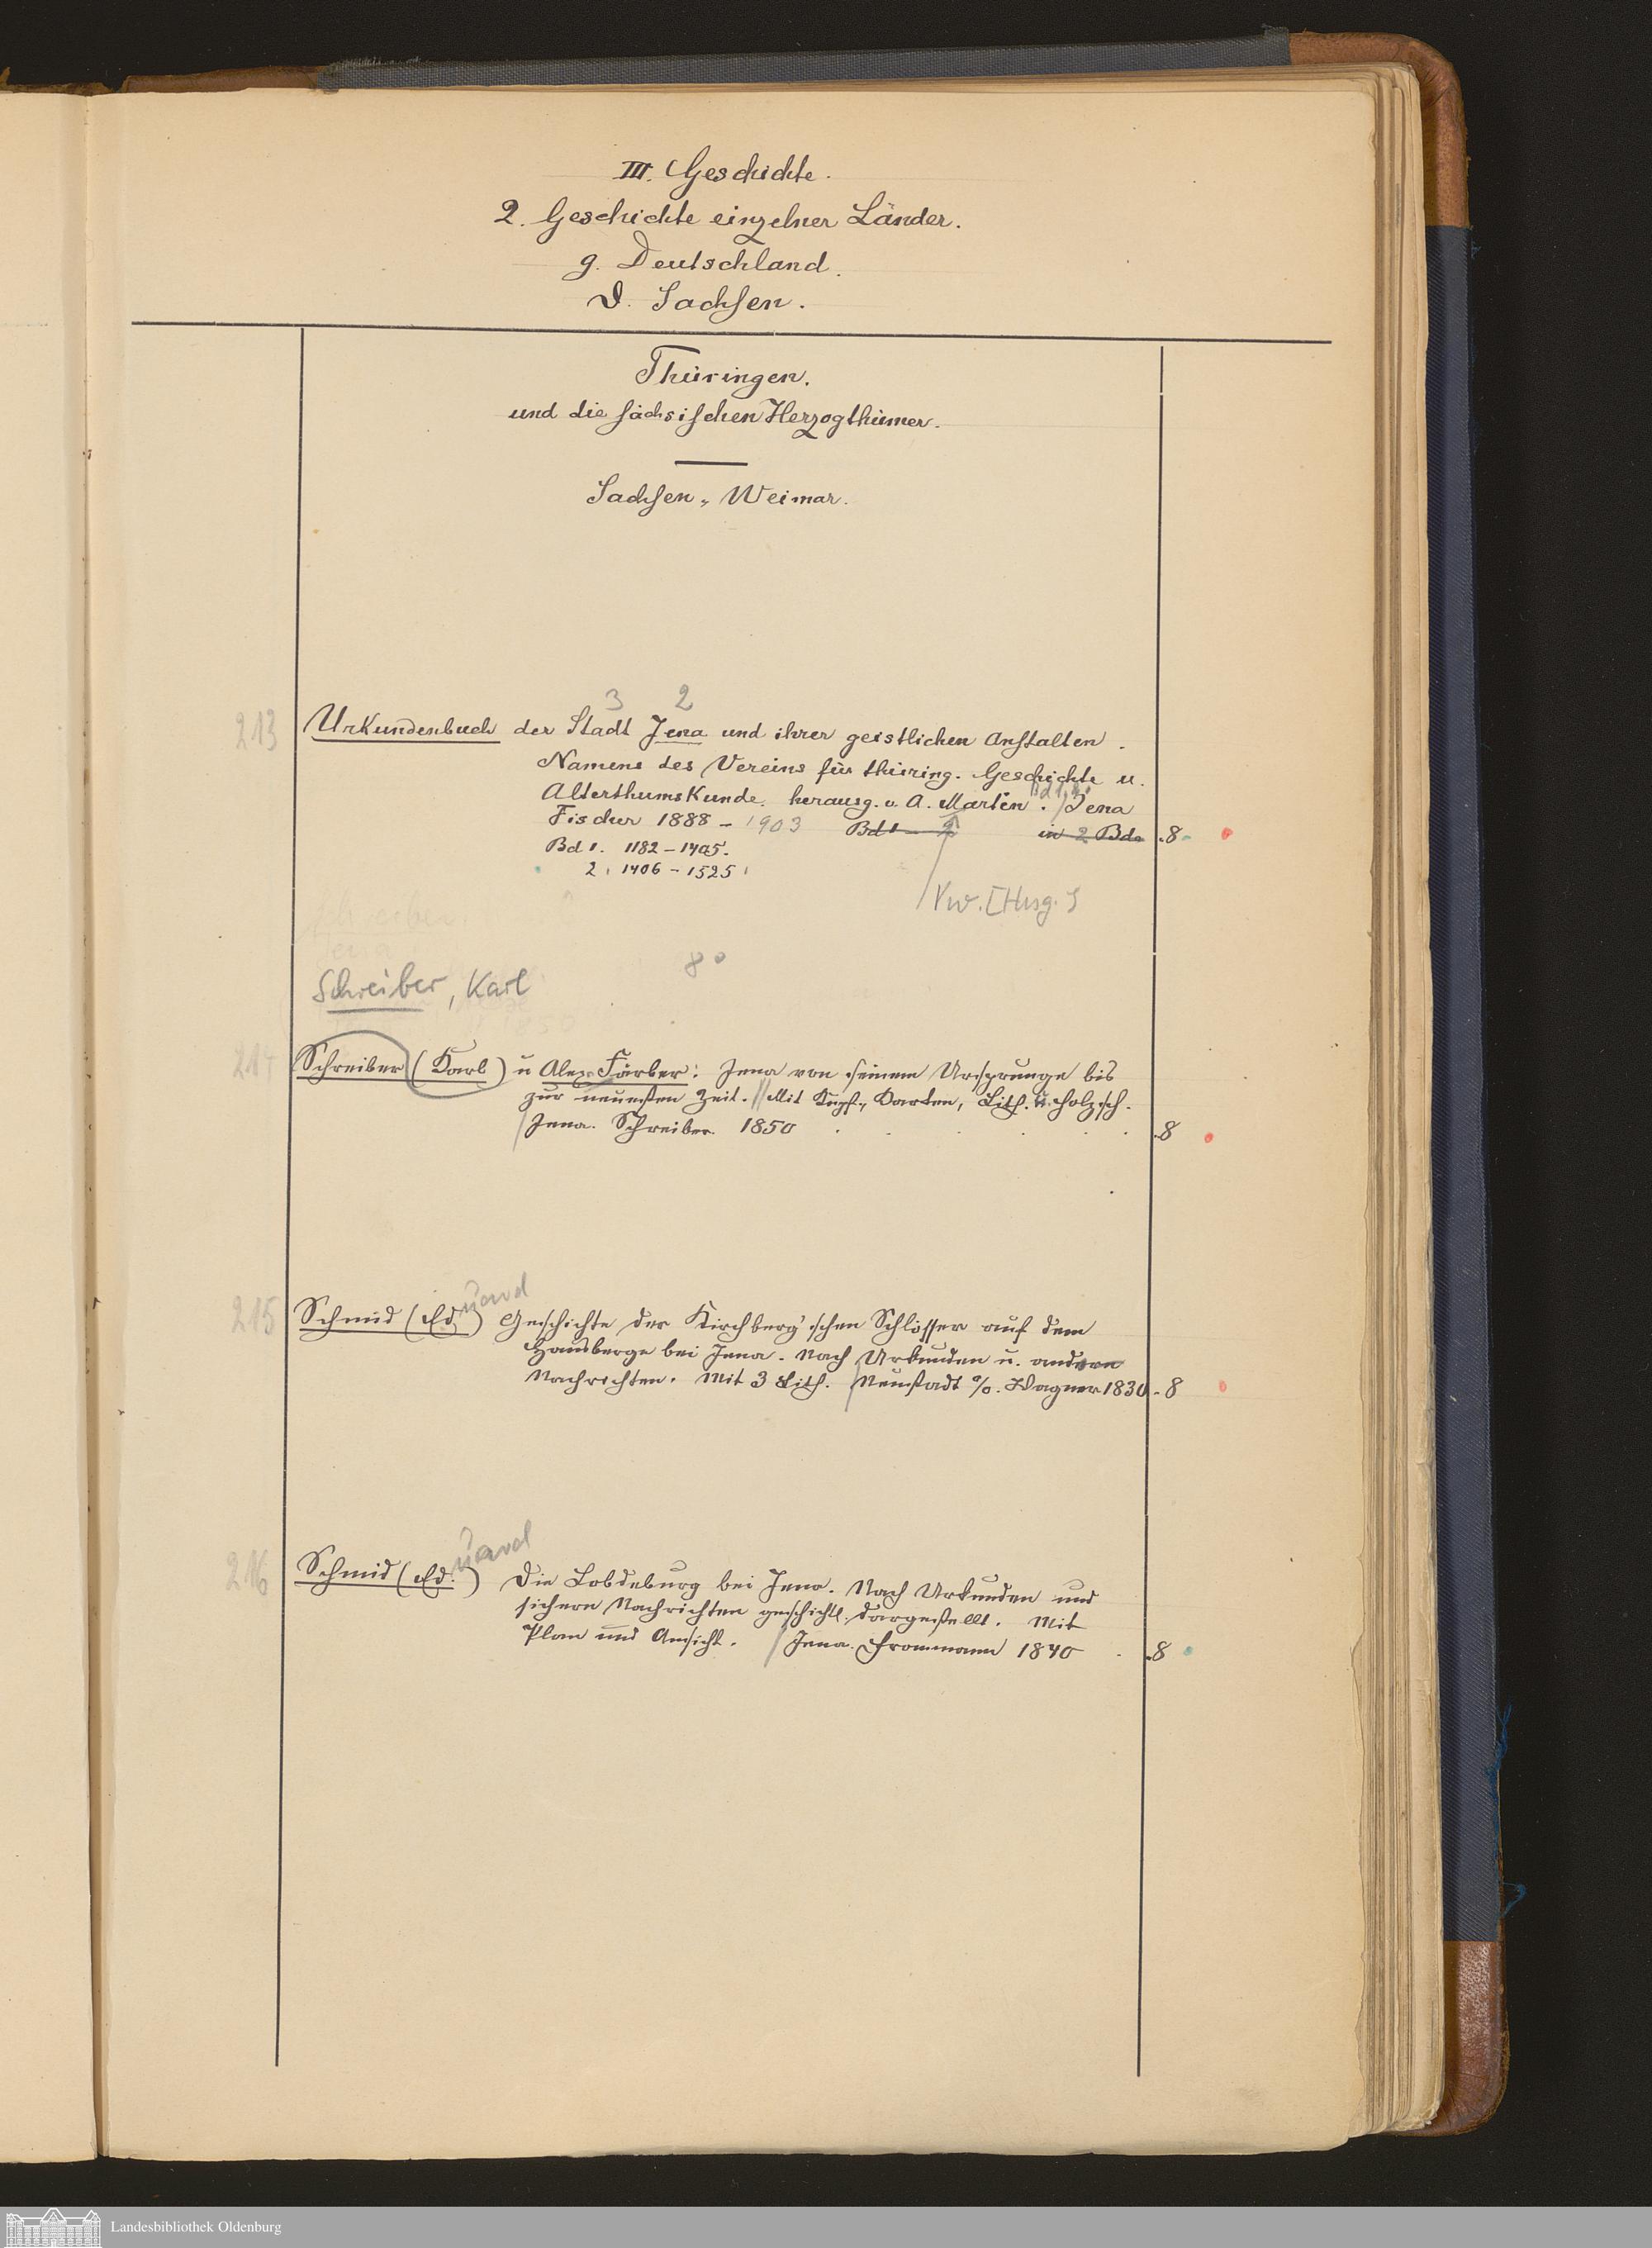 III. Geschichte.
2. Geschichte einzelner Länder.
g. Deutschland.
D. Sachsen.
Thüringen.
und die sächsischen Herzogthümer.
Sachsen-Weimar.
3 2
213 Urkundenbuch der Stadt Jena und ihrer geistlichen Anstalten.
Namens des Vereins für thüring. Geschichte u.
Alterthumskunde. herausg. v. A. Martin. Bd 1.2. / Jena
Fischer 1888 - 1903 Bd 1 - 2 in 2 Bde .8
Bd 1. 1182 - 1405.
2. 1406 - 1525.
Vw. [Hrsg.]
8°
Schreiber, Karl
214 Schreiber (Karl) u Alex. Färber: Jena von seinem Ursprunge bis
zur neuesten Zeit. // Mit Kupf., Karten, Lith. u. Holzsch.
/ Jena. Schreiber. 1850 . . . . . .8
215 Schmid (Eduard) Geschichte der Kirchberg'schen Schlösser auf dem
Hausberge bei Jena. Nach Urkunden u. andern
Nachrichten. Mit 3 Lith. / Neustadt a/O. Wagner 1830 .8
216 Schmid (Ed. uard) Die Lobdeburg bei Jena. Nach Urkunden und
sichern Nachrichten geschichtl. dargestellt. Mit
Plan und Ansicht. / Jena. Frommann 1840 . .8
Landesbibliothek Oldenburg